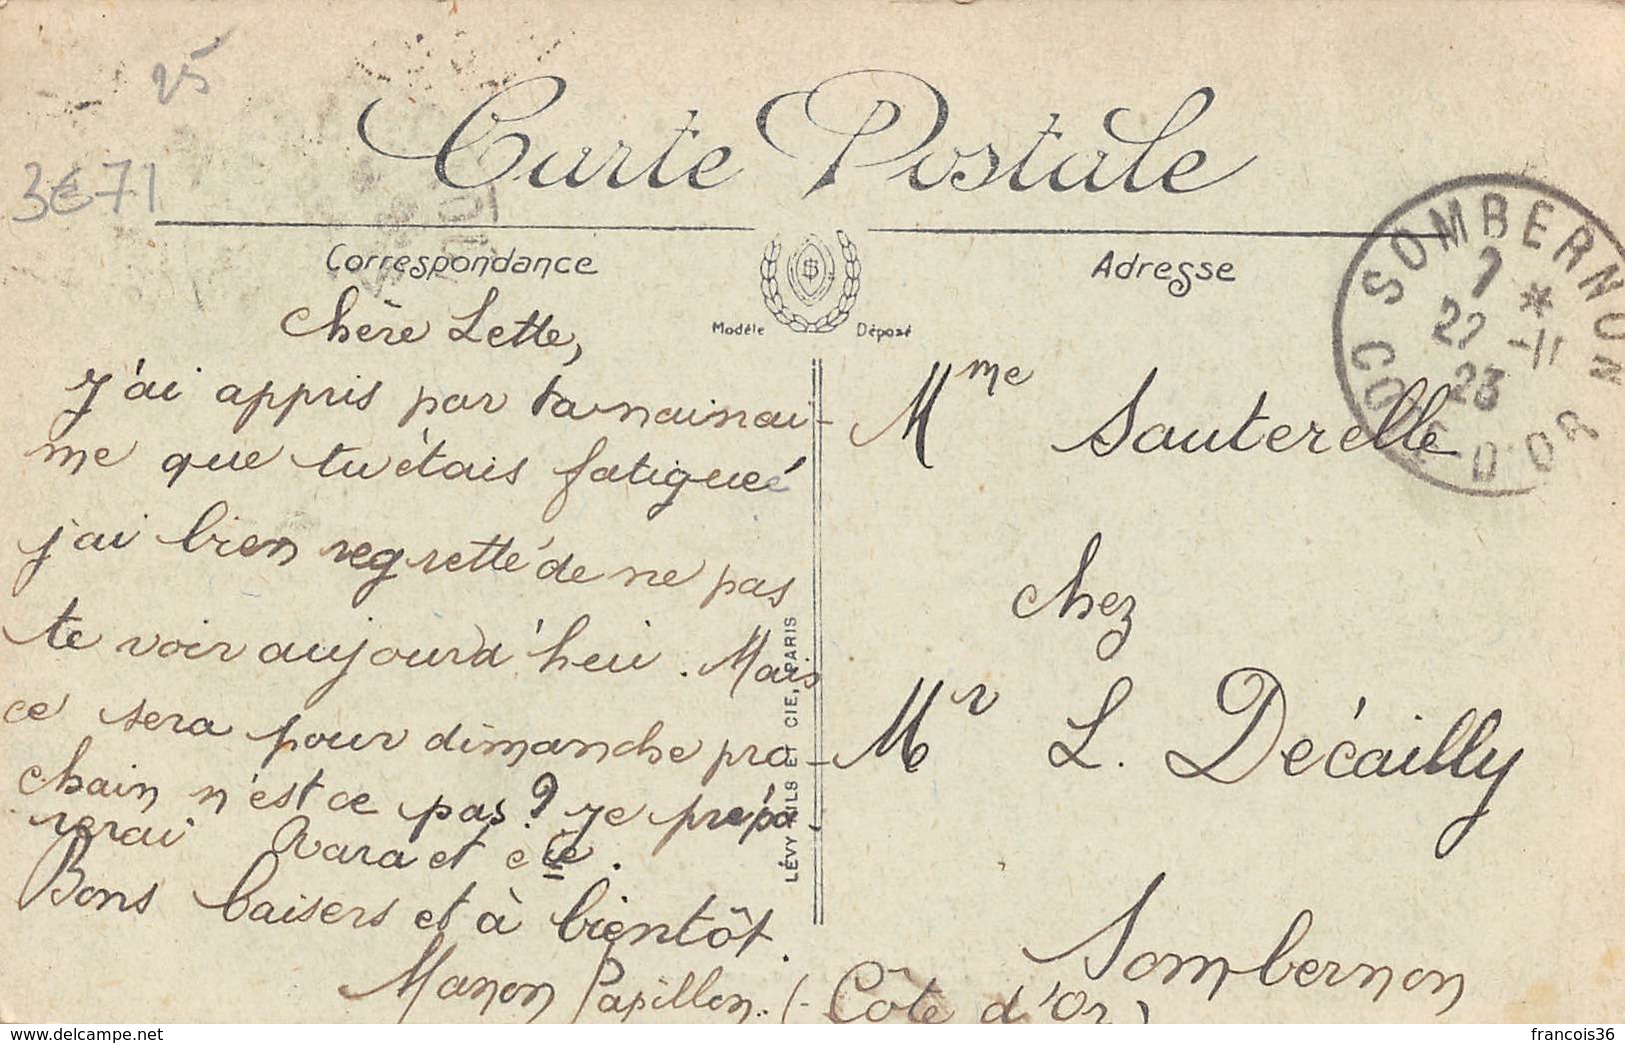 25
3€71
Carte Postale
Correspondance
Adresse
Modèle Déposé
SOMBERNON
7 *
22 -11
23
COTE-D'OR
Chère Lette,
J'ai appris par ta nainai-
me que tu étais fatiguée
j'ai bien regretté de ne pas
te voir aujourd'heui. Mais
ce sera pour dimanche pro-
chain n'est ce pas? Je prépa-
rerai Rara et cie.
Bons baisers et à bientôt.
Manon Papillon.
LÉVY FILS ET CIE, PARIS
Mme Sauterelle
chez
Mr L. Décailly
Sombernon
(Côte d'Or)
www.delcampe.net
francois36